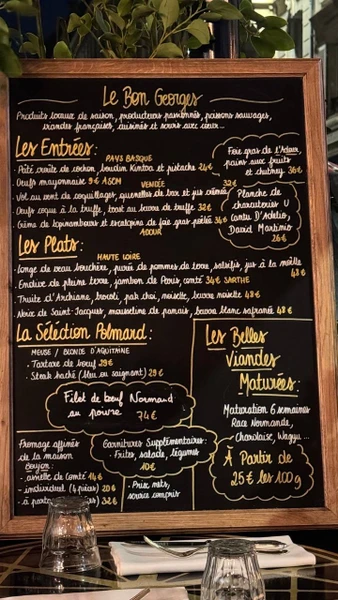 Le Bon Georges
Produits locaux de saison, producteurs passionnés, poissons sauvages,
viandes françaises, cuisinés et servis avec cœur...
Les Entrées :
PAYS BASQUE
· Pâté croûte de cochon, boudin Kintoa et pistache 24€
· Oeufs mayonnaise 9€ ASOM
VENDÉE
32€
· Vol au vent de coquillages, quenelles de bar et jus crémé
· Oeufs coque à la truffe, toast au beurre de truffe 32€
· Crème de topinambours et escalopine de foie gras poêlée 34€
ADOUR
Foie gras de l'Adour,
pains aux fruits
et chutney 36€
Planche de
charcuteries U
Cantu D'Adelio,
David Martinio
26€
Les Plats :
HAUTE LOIRE
· Longe de veau bouchère, purée de pommes de terre, salsifis, jus à la moëlle
48€
· Endive de pleine terre, jambon de Paris, comté 34€ SARTHE
· Truite d'Archiane, brocoli, pak choi, noisette, beurre noisette 48€
· Noix de Saint Jacques, mousseline de panais, beurre blanc safrané 48€
La Sélection Polmard :
MEUSE / BLONDE D'AQUITAINE
· Tartare de bœuf 29€
· Steak haché (bleu ou saignant) 29€
Filet de bœuf Normand
au poivre 74€
Fromage affinés
de la maison
Boujon :
· assiette de Comté 14€
· individuel (4 pièces) 20€
· à partager 32€
Garnitures Supplémentaires :
Frites, salade, légumes
10€
· Prix nets,
service compris
Les Belles
Viandes
Maturées :
Maturation 6 semaines
Race Normande,
Charolaise, Wagyu...
À Partir de
25€ les 100g